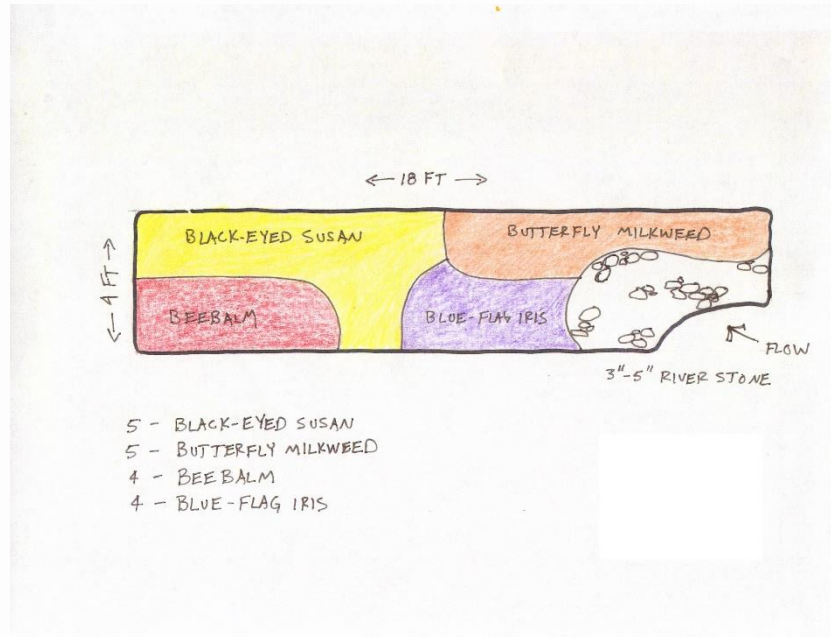 ← 18 FT →
BLACK-EYED SUSAN
BUTTERFLY MILKWEED
← 4 FT →
BEEBALM
BLUE-FLAG IRIS
FLOW
3"-5" RIVER STONE
5 - BLACK-EYED SUSAN
5 - BUTTERFLY MILKWEED
4 - BEEBALM
4 - BLUE-FLAG IRIS